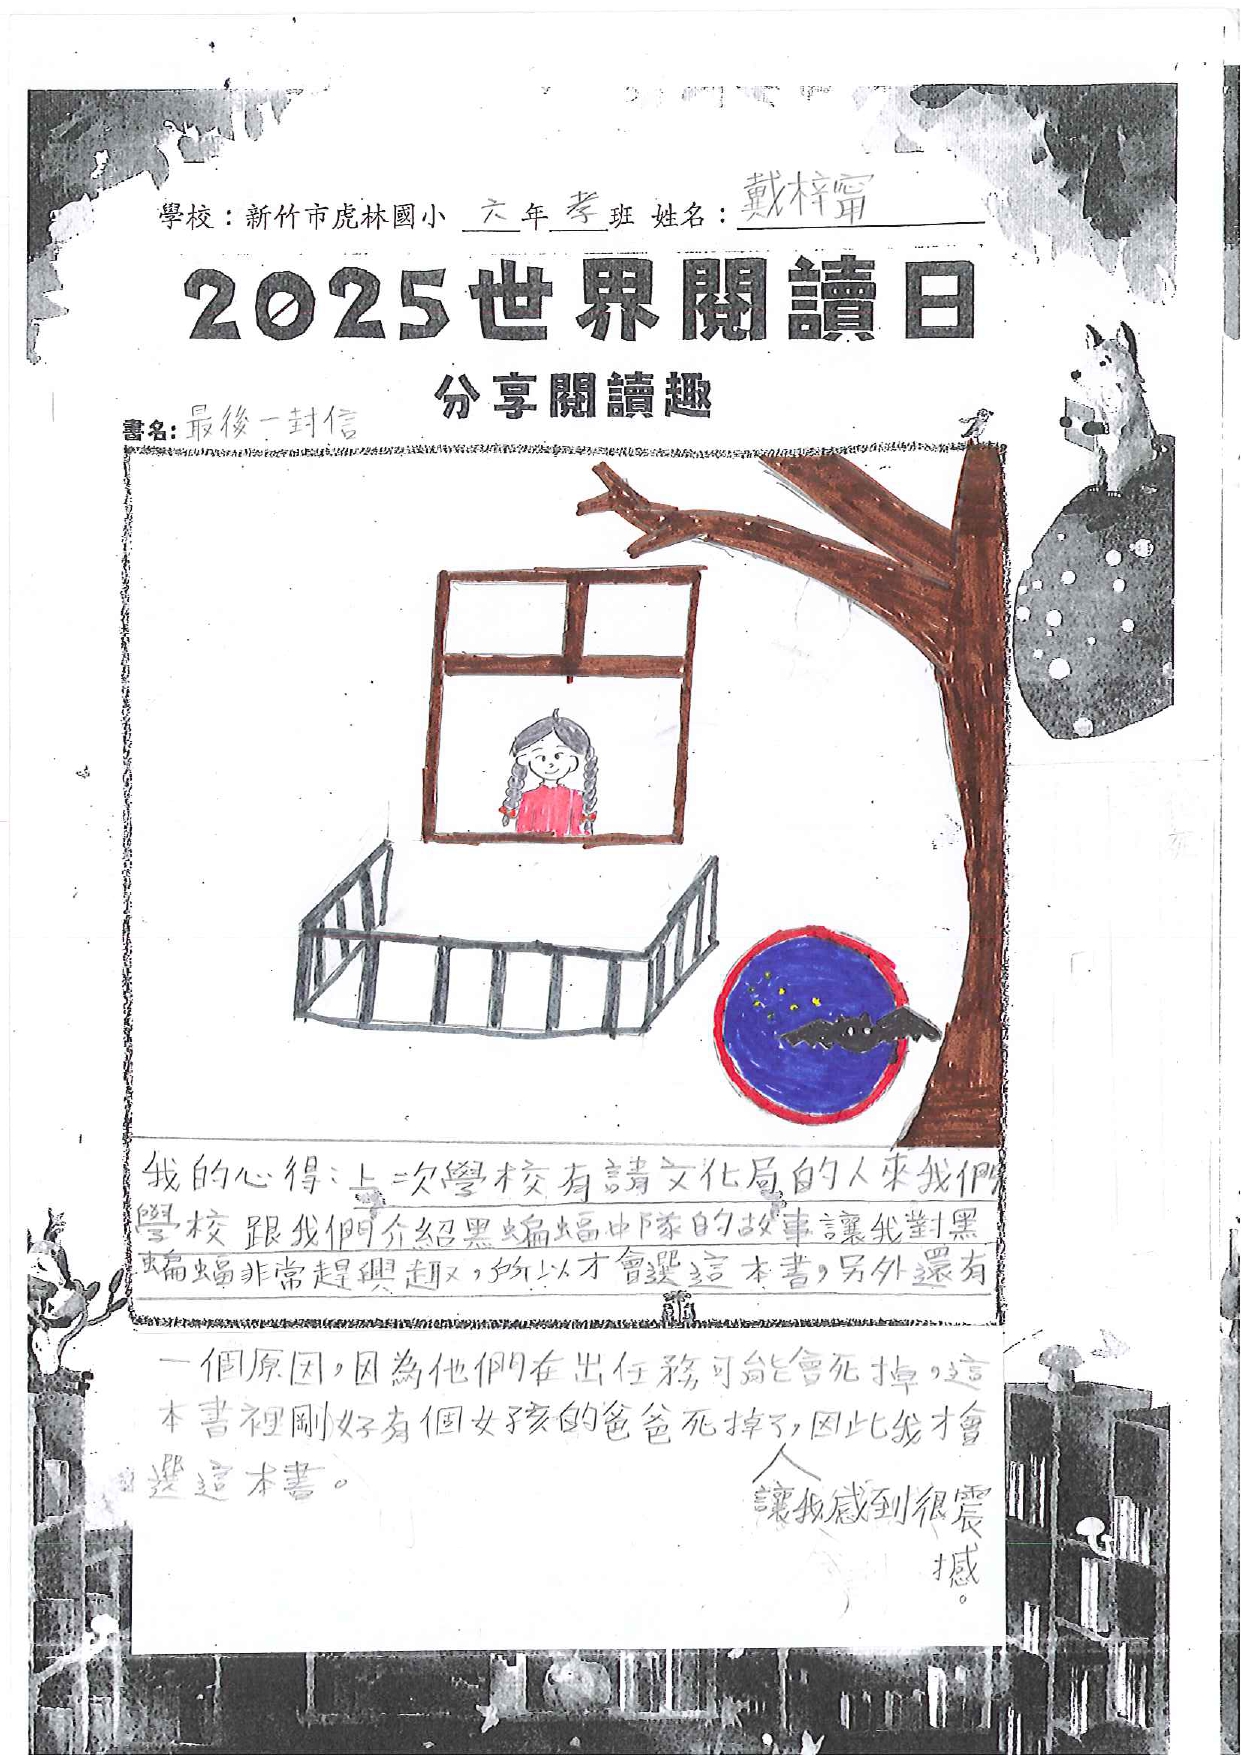 學校：新竹市虎林國小 六年孝班 姓名：戴梓甯
2025世界閱讀日
分享閱讀趣
書名: 最後一封信
我的心得：上次學校有請文化局的人來我們
學校跟我們介紹黑蝙蝠中隊的故事讓我對黑
蝙蝠非常趕興趣，所以才會選這本書，另外還有
一個原因，因為他們在出任務可能會死掉，這
本書裡剛好有個女孩的爸爸死掉了，因此我才會
選這本書。
讓我感到很震
撼。